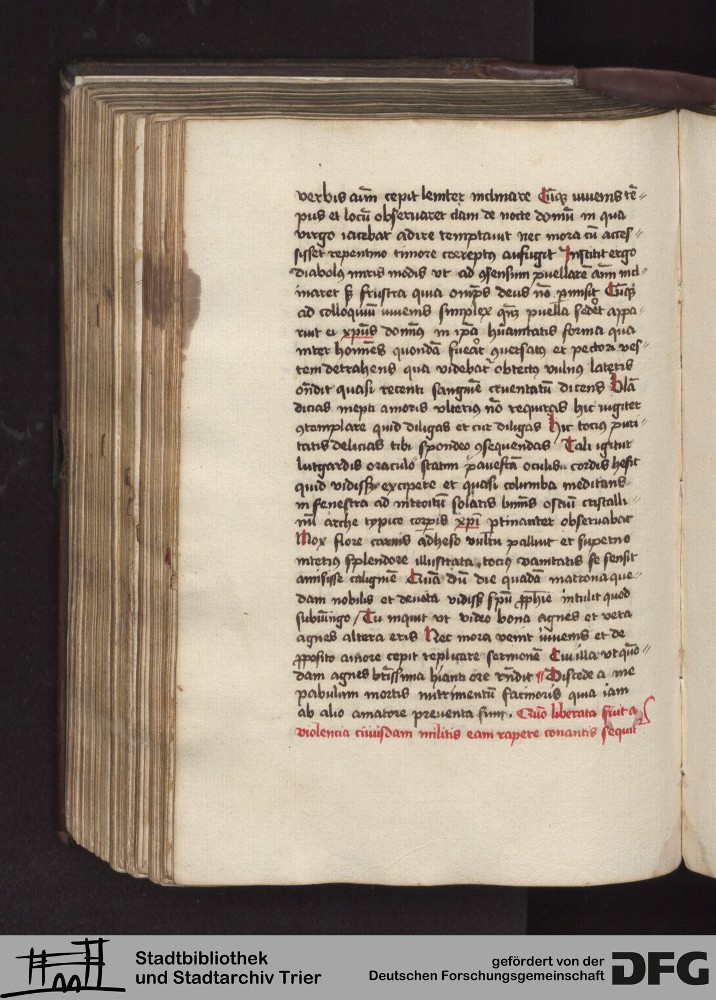 verbis aīm cepit leniter inclinare Cūqꝫ iuuenis tē⸗
pus et locū obseruaret clam de nocte domū in qua
virgo iacebat adire temptauit nec mora cū acces⸗
sisset repentino timore correptꝰ aufugit Institit ergo
diabolꝰ miris modis vt ad ꝯsensum puellarē aīm incl⸗
inaret sꝫ frustra quia om̄ps deus nō ꝑmisit Cūqꝫ
ad colloquiū iuuenis simplex puella sederet appa⸗
ruit ei xp̄us domīꝰ in ip̄a hūanitatis forma qua
inter homīes quondā fuerat ꝯuersatꝰ et pectori ves⸗
tem detrahens qua videbat᷑ obtectꝰ vulnꝰ lateris
ondit quasi recenti sanguīe cruentatū dicens Blā
dicias inepti amoris vlteriꝰ nō requiras hic iugiter
ꝯtemplare quid diligas et cur diligas Hic tociꝰ puri⸗
tatis delicias tibi spondeo ꝯsequendas Tali igitur
lutgardis oraculo statim pauefcā oculis cordis hesit
quid vidisset excipere et quasi columba meditans
in fenestra ad introitū solaris lumīs ostiū cristalli⸗
nū arche typice corpis xp̄i ꝑtinanter obseruabat
Mox flore carnis adheso vultu palluit et superno
interiꝰ splendore illustrata tociꝰ vanitatis se sensit
amisisse caligīnē Quā dū die quadā matrona que⸗
dam nobilis et deuota vidisset spū ꝓphīe intulit quod
subiūngo / Tu inquit vt video bona agnes et vera
agnes altera eris Nec mora venit iuuenis et de
ꝓposito amore cepit replicare sermonē Cui illa vt quō⸗
dam agnes btīssima hianti ore rn̄dit Discede a me
pabulum mortis nutrimentū facinoris quia iam
ab alio amatore preuenta sum. Quō liberata fuit a
violencia cuiusdam militis eam rapere conantis sequit᷑
Stadtbibliothek
und Stadtarchiv Trier
gefördert von der
Deutschen Forschungsgemeinschaft
DFG